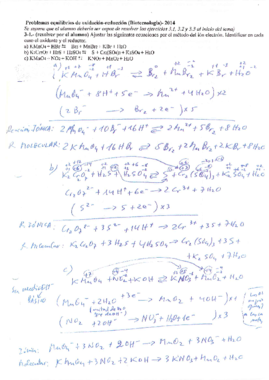 Problemas equilibrio de oxidación-reducción (Biotecnología)- 2014
Se espera que el alumno debería ser capaz de resolver los ejercicios 3.1, 3.2 y 3.3 al inicio del tema)
3-1.- (resolver por el alumno) Ajustar las siguientes ecuaciones por el método del ión electrón. Identificar en cada caso el oxidante y el reductor.
a) KMnO₄ + HBr ⇆ Br₂ + MnBr₂ + KBr + H₂O
b) K₂Cr₂O₇ + H₂S + H₂SO₄ ⇆ S + Cr₂(SO₄)₃ + K₂SO₄ + H₂O
c) KMnO₄ + NO₂ + KOH ⇆ KNO₃ + MnO₂ + H₂O
KMnO₄ + HBr ⇌ Br₂ + MnBr₂ + KBr + H₂O
(MnO₄⁻ + 8H⁺ + 5e⁻ → Mn²⁺ + 4H₂O) x2
(2Br⁻ → Br₂ + 2e⁻) x5
Reacción Iónica: 2MnO₄⁻ + 10Br⁻ + 16H⁺ ⇌ 2Mn²⁺ + 5Br₂ + 8H₂O
R. Molecular: 2KMnO₄ + 16HBr ⇌ 5Br₂ + 2MnBr₂ + 2KBr + 8H₂O
b) K₂Cr₂O₇ + H₂S + H₂SO₄ ⇌ S + Cr₂(SO₄)₃ + K₂SO₄ + H₂O
Cr₂O₇²⁻ + 14H⁺ + 6e⁻ → 2Cr³⁺ + 7H₂O
(S²⁻ → S + 2e⁻) x3
R. Iónica: Cr₂O₇²⁻ + 3S²⁻ + 14H⁺ ⇌ 2Cr³⁺ + 3S + 7H₂O
R. Molecular: K₂Cr₂O₇ + 3H₂S + 4H₂SO₄ → Cr₂(SO₄)₃ + 3S +
+ K₂SO₄ + 7H₂O
c) KMnO₄ + NO₂ + KOH ⇌ KNO₃ + MnO₂ + H₂O
Básico
(MnO₄⁻ + 2H₂O + 3e⁻ → MnO₂ + 4OH⁻) x1
(NO₂ → NO₃⁻ + H₂O + 1e⁻) x3
Iónica: MnO₄⁻ + 3NO₂ + 2OH⁻ → MnO₂ + 3NO₃⁻ + H₂O
Molecular: KMnO₄ + 3NO₂ + 2KOH → 3KNO₃ + MnO₂ + H₂O